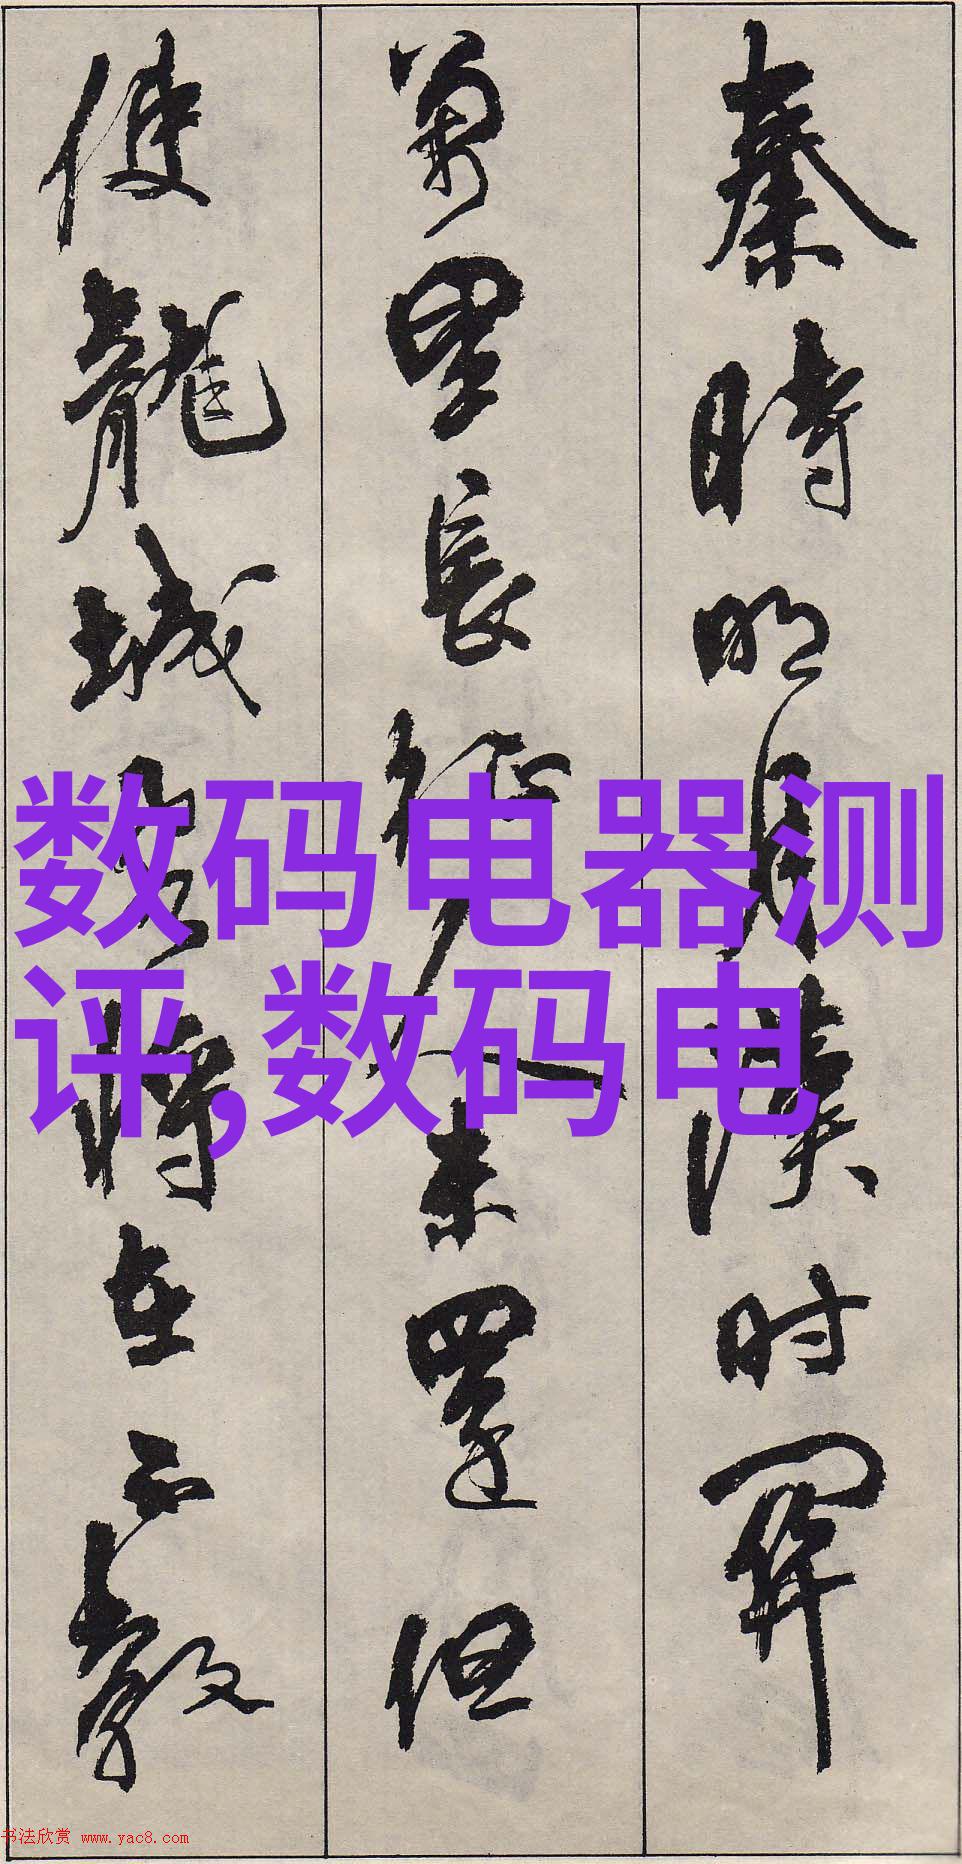 秦時明月漢时関
萬里長征人未還但
使龍城飛将在不教
数码电器测
评,数码电
书法欣赏 www.yac8.com